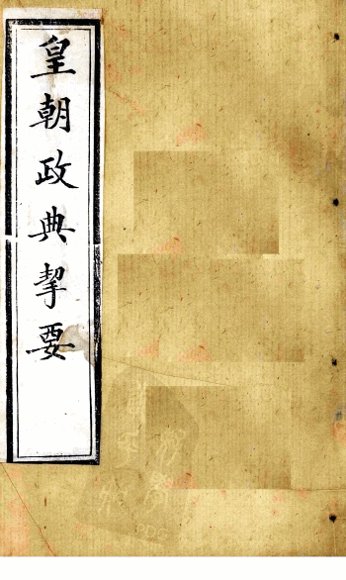 皇朝政典挈要